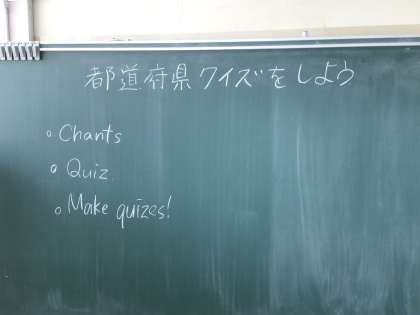 都道府県クイズをしよう
○ Chants
○ Quiz
○ Make quizes!